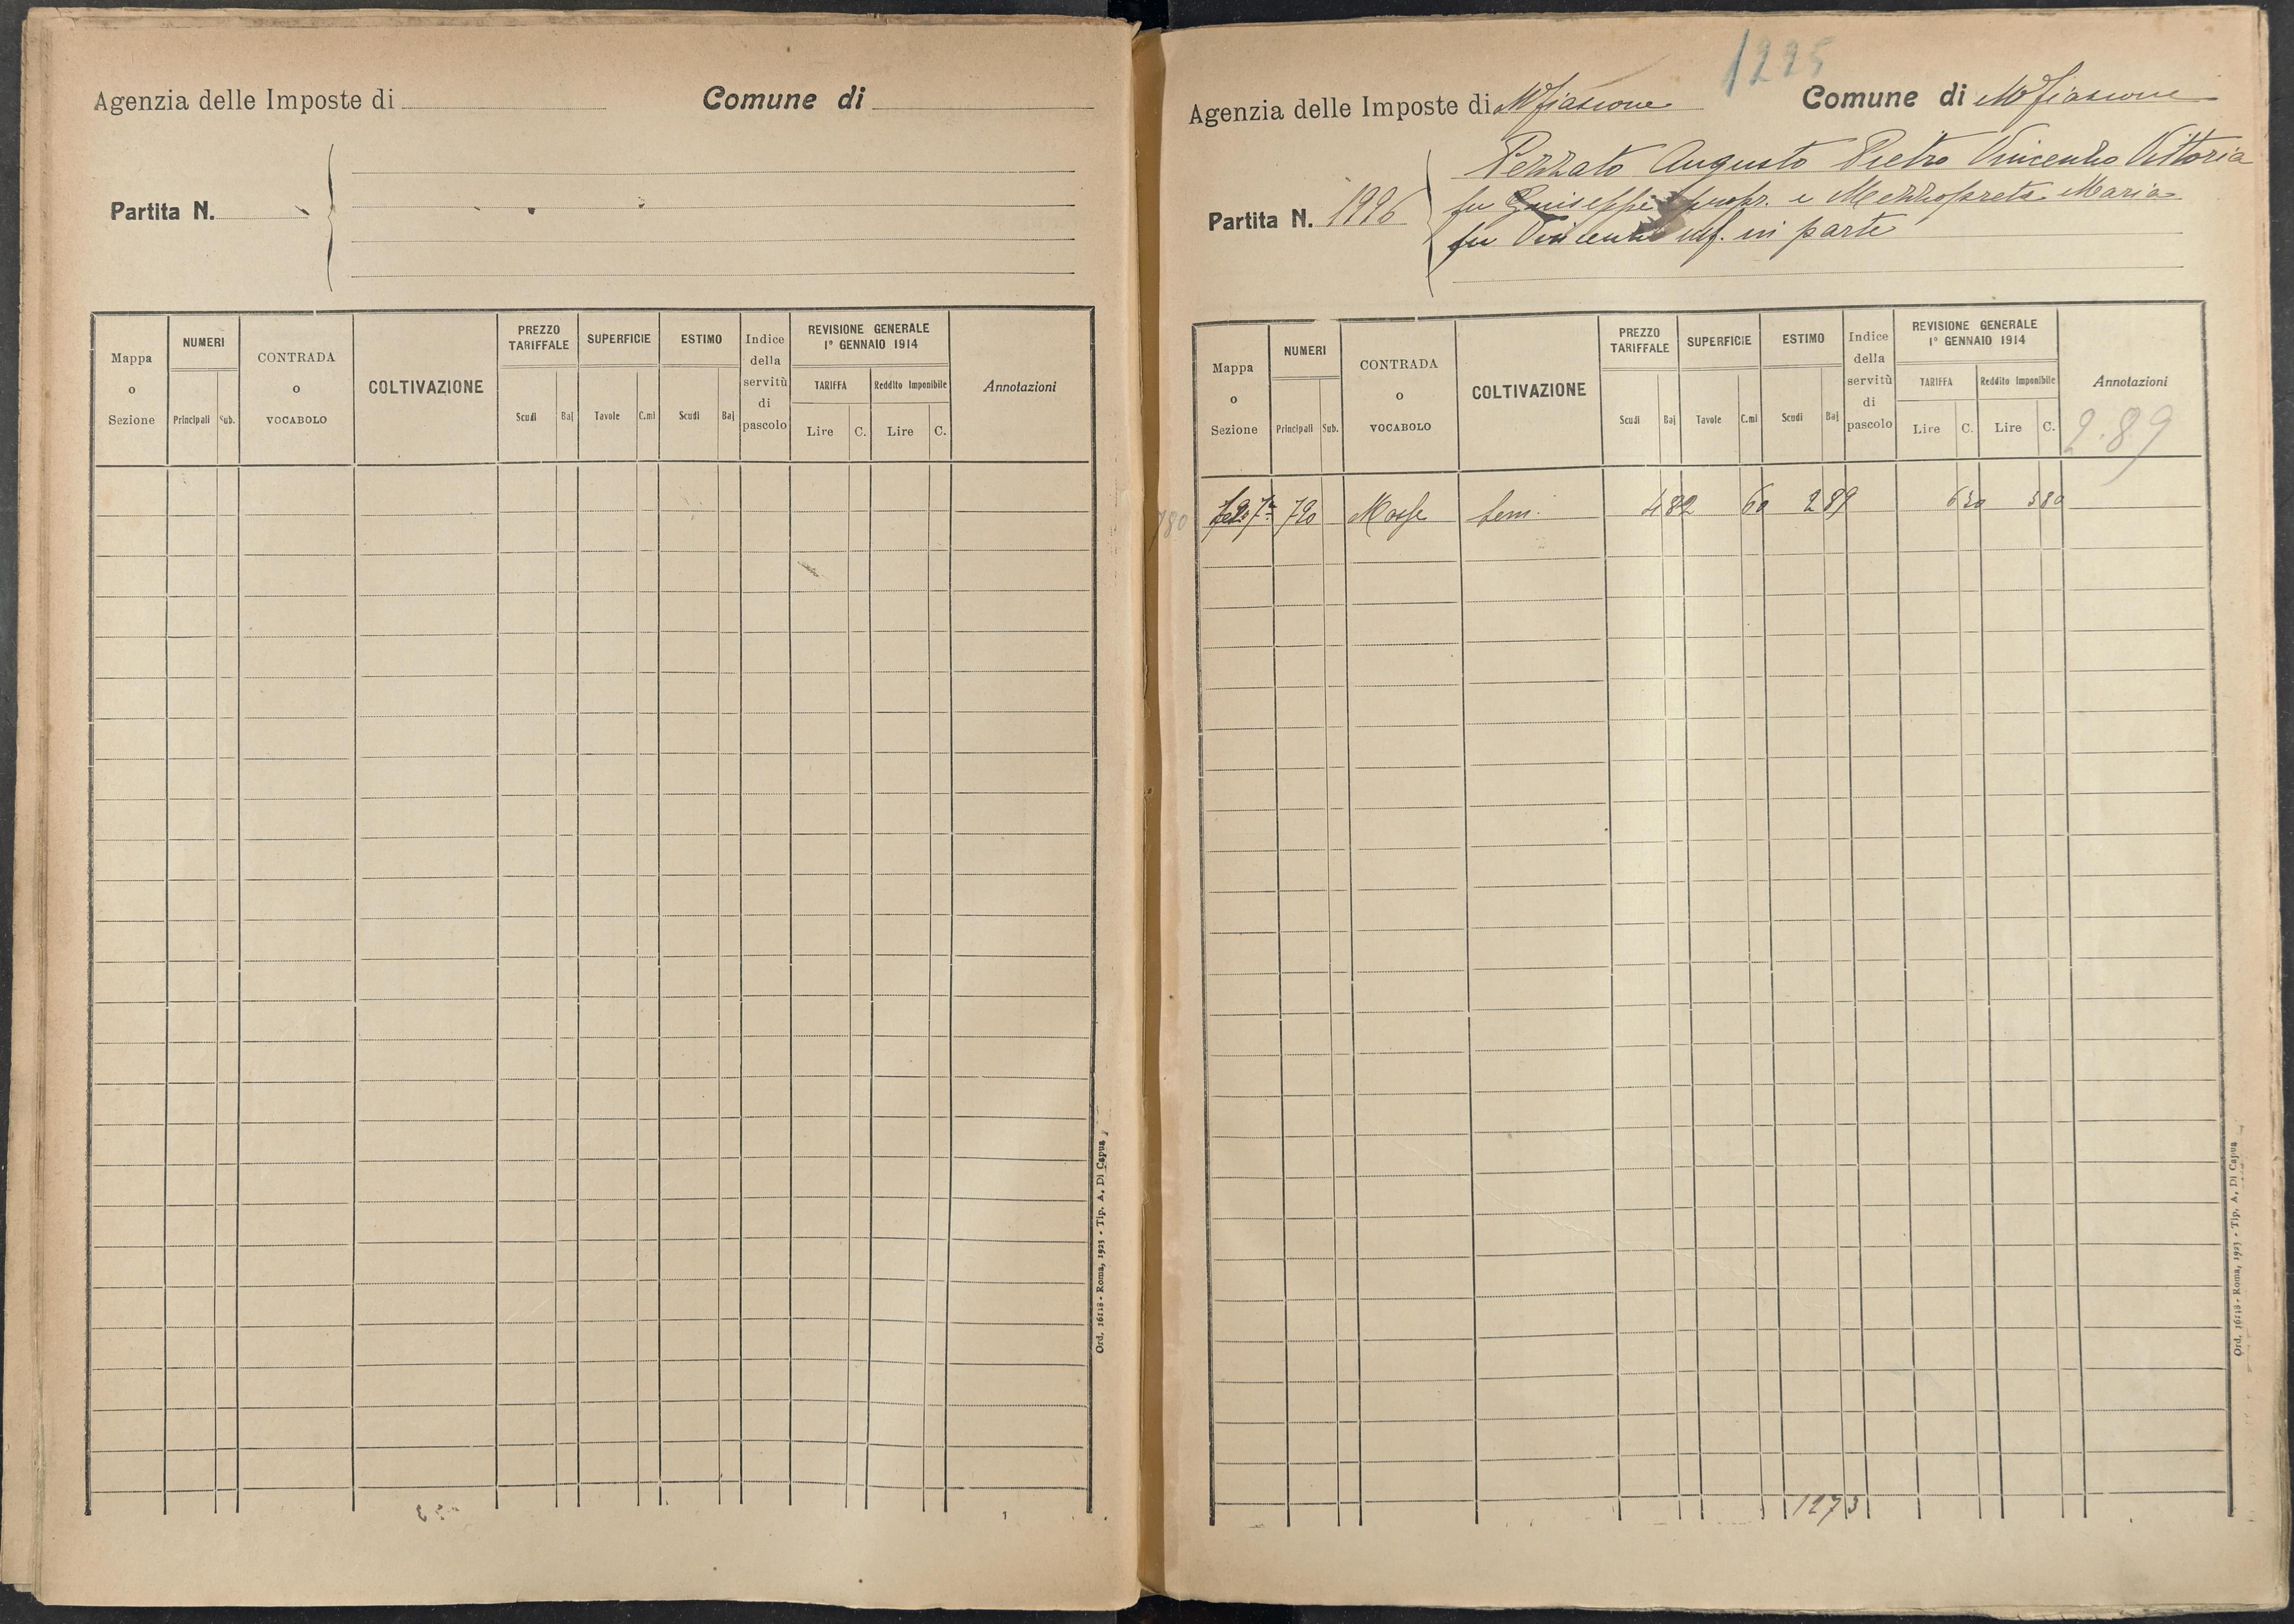 Agenzia delle Imposte di
Comune di
Partita N.
Mappa o Sezione
NUMERI
Principali Sub.
CONTRADA o VOCABOLO
COLTIVAZIONE
PREZZO TARIFFALE
Scudi Baj
SUPERFICIE
Tavole C.mi
ESTIMO
Scudi Baj
Indice della servitù di pascolo
REVISIONE GENERALE
1° GENNAIO 1914
TARIFFA
Lire C.
Reddito Imponibile
Lire C.
Annotazioni
Ord. 16118 - Roma, 1923 - Tip. A. Di Capua
1
1225
Agenzia delle Imposte di Mfiascone
Comune di Mfiascone
Pezzato Augusto Pietro Vincenzo Vittoria
Partita N. 1996
fu Giuseppe propr. e Mezzoprete Maria
fu Vincenzo usf. in parte
Mappa o Sezione
NUMERI
Principali Sub.
CONTRADA o VOCABOLO
COLTIVAZIONE
PREZZO TARIFFALE
Scudi Baj
SUPERFICIE
Tavole C.mi
ESTIMO
Scudi Baj
Indice della servitù di pascolo
REVISIONE GENERALE
1° GENNAIO 1914
TARIFFA
Lire C.
Reddito Imponibile
Lire C.
Annotazioni
2.89
780 7ª 720 Mosse Sem. 482 60 289 630 380
1273
Ord. 16118 - Roma, 1923 - Tip. A. Di Capua